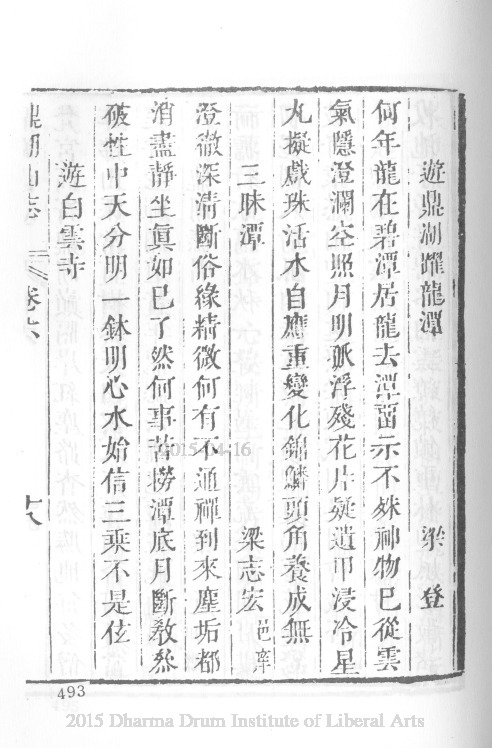 遊鼎湖躍龍潭　梁　登
何年龍在碧潭居龍去潭畱示不殊神物已從雲
氣隱澄瀾空照月明孤浮殘花片疑遺甲浸冷星
丸擬戲珠活水自應重變化錦鱗頭角養成無
三昧潭　梁志宏 邑庠
澄徹深清斷俗緣精微何有不通禪到來塵垢都
消盡靜坐眞如已了然何事苦撈潭底月斷敎叅
破性中天分明一鉢明心水始信三乘不是伭
遊白雲寺
鼎湖山志　卷六　十八
2015-04-16
493
2015 Dharma Drum Institute of Liberal Arts